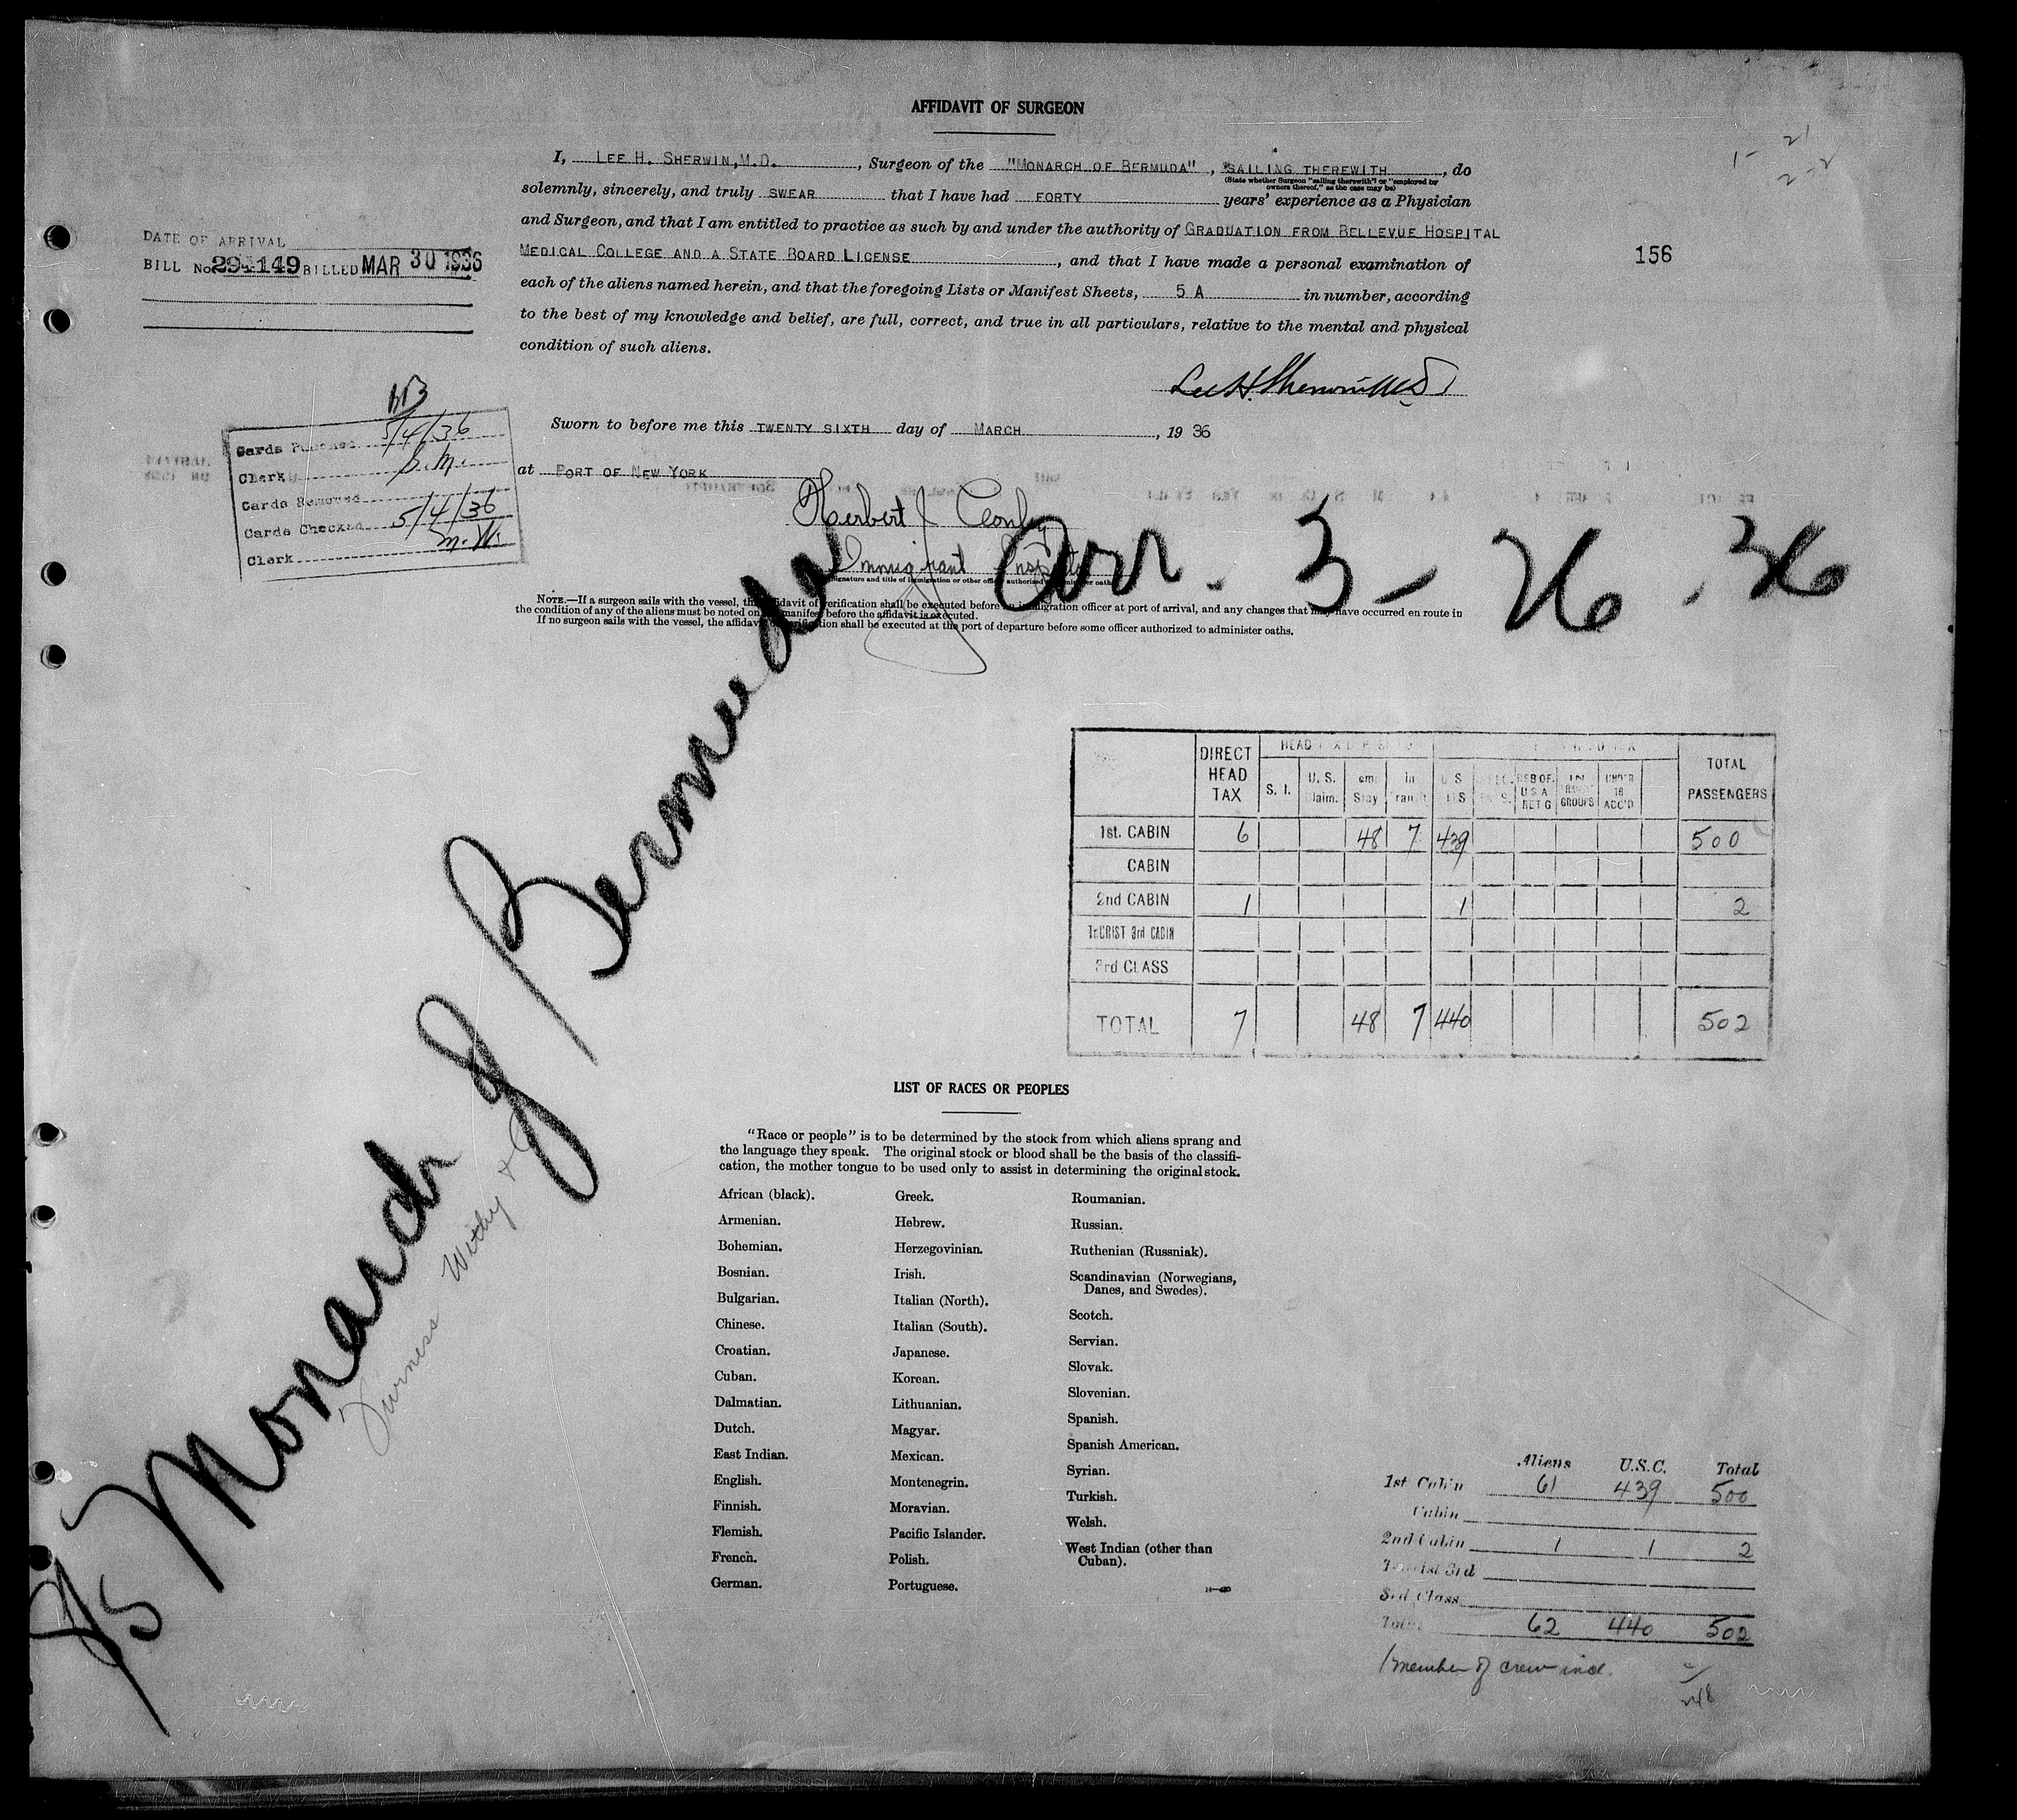 AFFIDAVIT OF SURGEON
I, LEE H. SHERWIN, M.D. , Surgeon of the "MONARCH OF BERMUDA" , SAILING THEREWITH , do
(State whether Surgeon "sailing therewith" or "employed by
owners thereof," as the case may be)
solemnly, sincerely, and truly SWEAR that I have had FORTY years' experience as a Physician
and Surgeon, and that I am entitled to practice as such by and under the authority of GRADUATION FROM BELLEVUE HOSPITAL
MEDICAL COLLEGE AND A STATE BOARD LICENSE , and that I have made a personal examination of
each of the aliens named herein, and that the foregoing Lists or Manifest Sheets, 5 A in number, according
to the best of my knowledge and belief, are full, correct, and true in all particulars, relative to the mental and physical
condition of such aliens.
Lee H. Sherwin M.D.
DATE OF ARRIVAL
BILL No. 294149 BILLED MAR 30 1936
156
Sworn to before me this TWENTY SIXTH day of MARCH , 19 36
at PORT OF NEW YORK
Herbert J
Immigrant Inspector
(Signature and title of immigration or other officer authorized to administer oaths)
Cards Punched 5/4/36
Clerk S.M.
Cards Removed
Cards Checked 5/4/36
Clerk M.W.
Arr. 3-26-36
NOTE.—If a surgeon sails with the vessel, this affidavit of verification shall be executed before an immigration officer at port of arrival, and any changes that may have occurred en route in
the condition of any of the aliens must be noted on manifest before the affidavit is executed.
If no surgeon sails with the vessel, the affidavit of verification shall be executed at the port of departure before some officer authorized to administer oaths.
SS Monarch of Bermuda
Furness Withy & Co
DIRECT HEAD TAX S. I. U. S. Claim. Stay In Transit U S UNDER 16 ACC'D TOTAL PASSENGERS
1st. CABIN 6 48 7 439 500
CABIN
2nd CABIN 1 1 2
TOURIST 3rd CABIN
3rd CLASS
TOTAL 7 48 7 440 502
LIST OF RACES OR PEOPLES
"Race or people" is to be determined by the stock from which aliens sprang and
the language they speak. The original stock or blood shall be the basis of the classifi-
cation, the mother tongue to be used only to assist in determining the original stock.
African (black).
Armenian.
Bohemian.
Bosnian.
Bulgarian.
Chinese.
Croatian.
Cuban.
Dalmatian.
Dutch.
East Indian.
English.
Finnish.
Flemish.
French.
German.
Greek.
Hebrew.
Herzegovinian.
Irish.
Italian (North).
Italian (South).
Japanese.
Korean.
Lithuanian.
Magyar.
Mexican.
Montenegrin.
Moravian.
Pacific Islander.
Polish.
Portuguese.
Roumanian.
Russian.
Ruthenian (Russniak).
Scandinavian (Norwegians,
Danes, and Swedes).
Scotch.
Servian.
Slovak.
Slovenian.
Spanish.
Spanish American.
Syrian.
Turkish.
Welsh.
West Indian (other than
Cuban).
Aliens U.S.C. Total
1st Cabin 61 439 500
Cabin
2nd Cabin 1 1 2
Tourist 3rd
3rd Class
Total 62 440 502
1 member of crew incl.